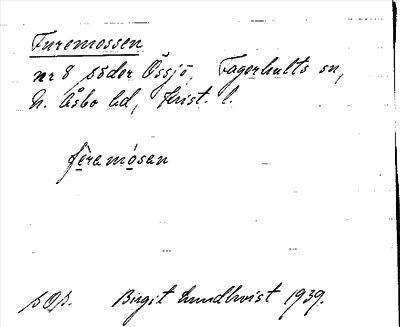 Furemossen
nr 8 söder Össjö, Fagerhults sn,
N. Åsbo hd, Krist. l.
fèremósen
s Os. Birgit Lundkvist 1939.